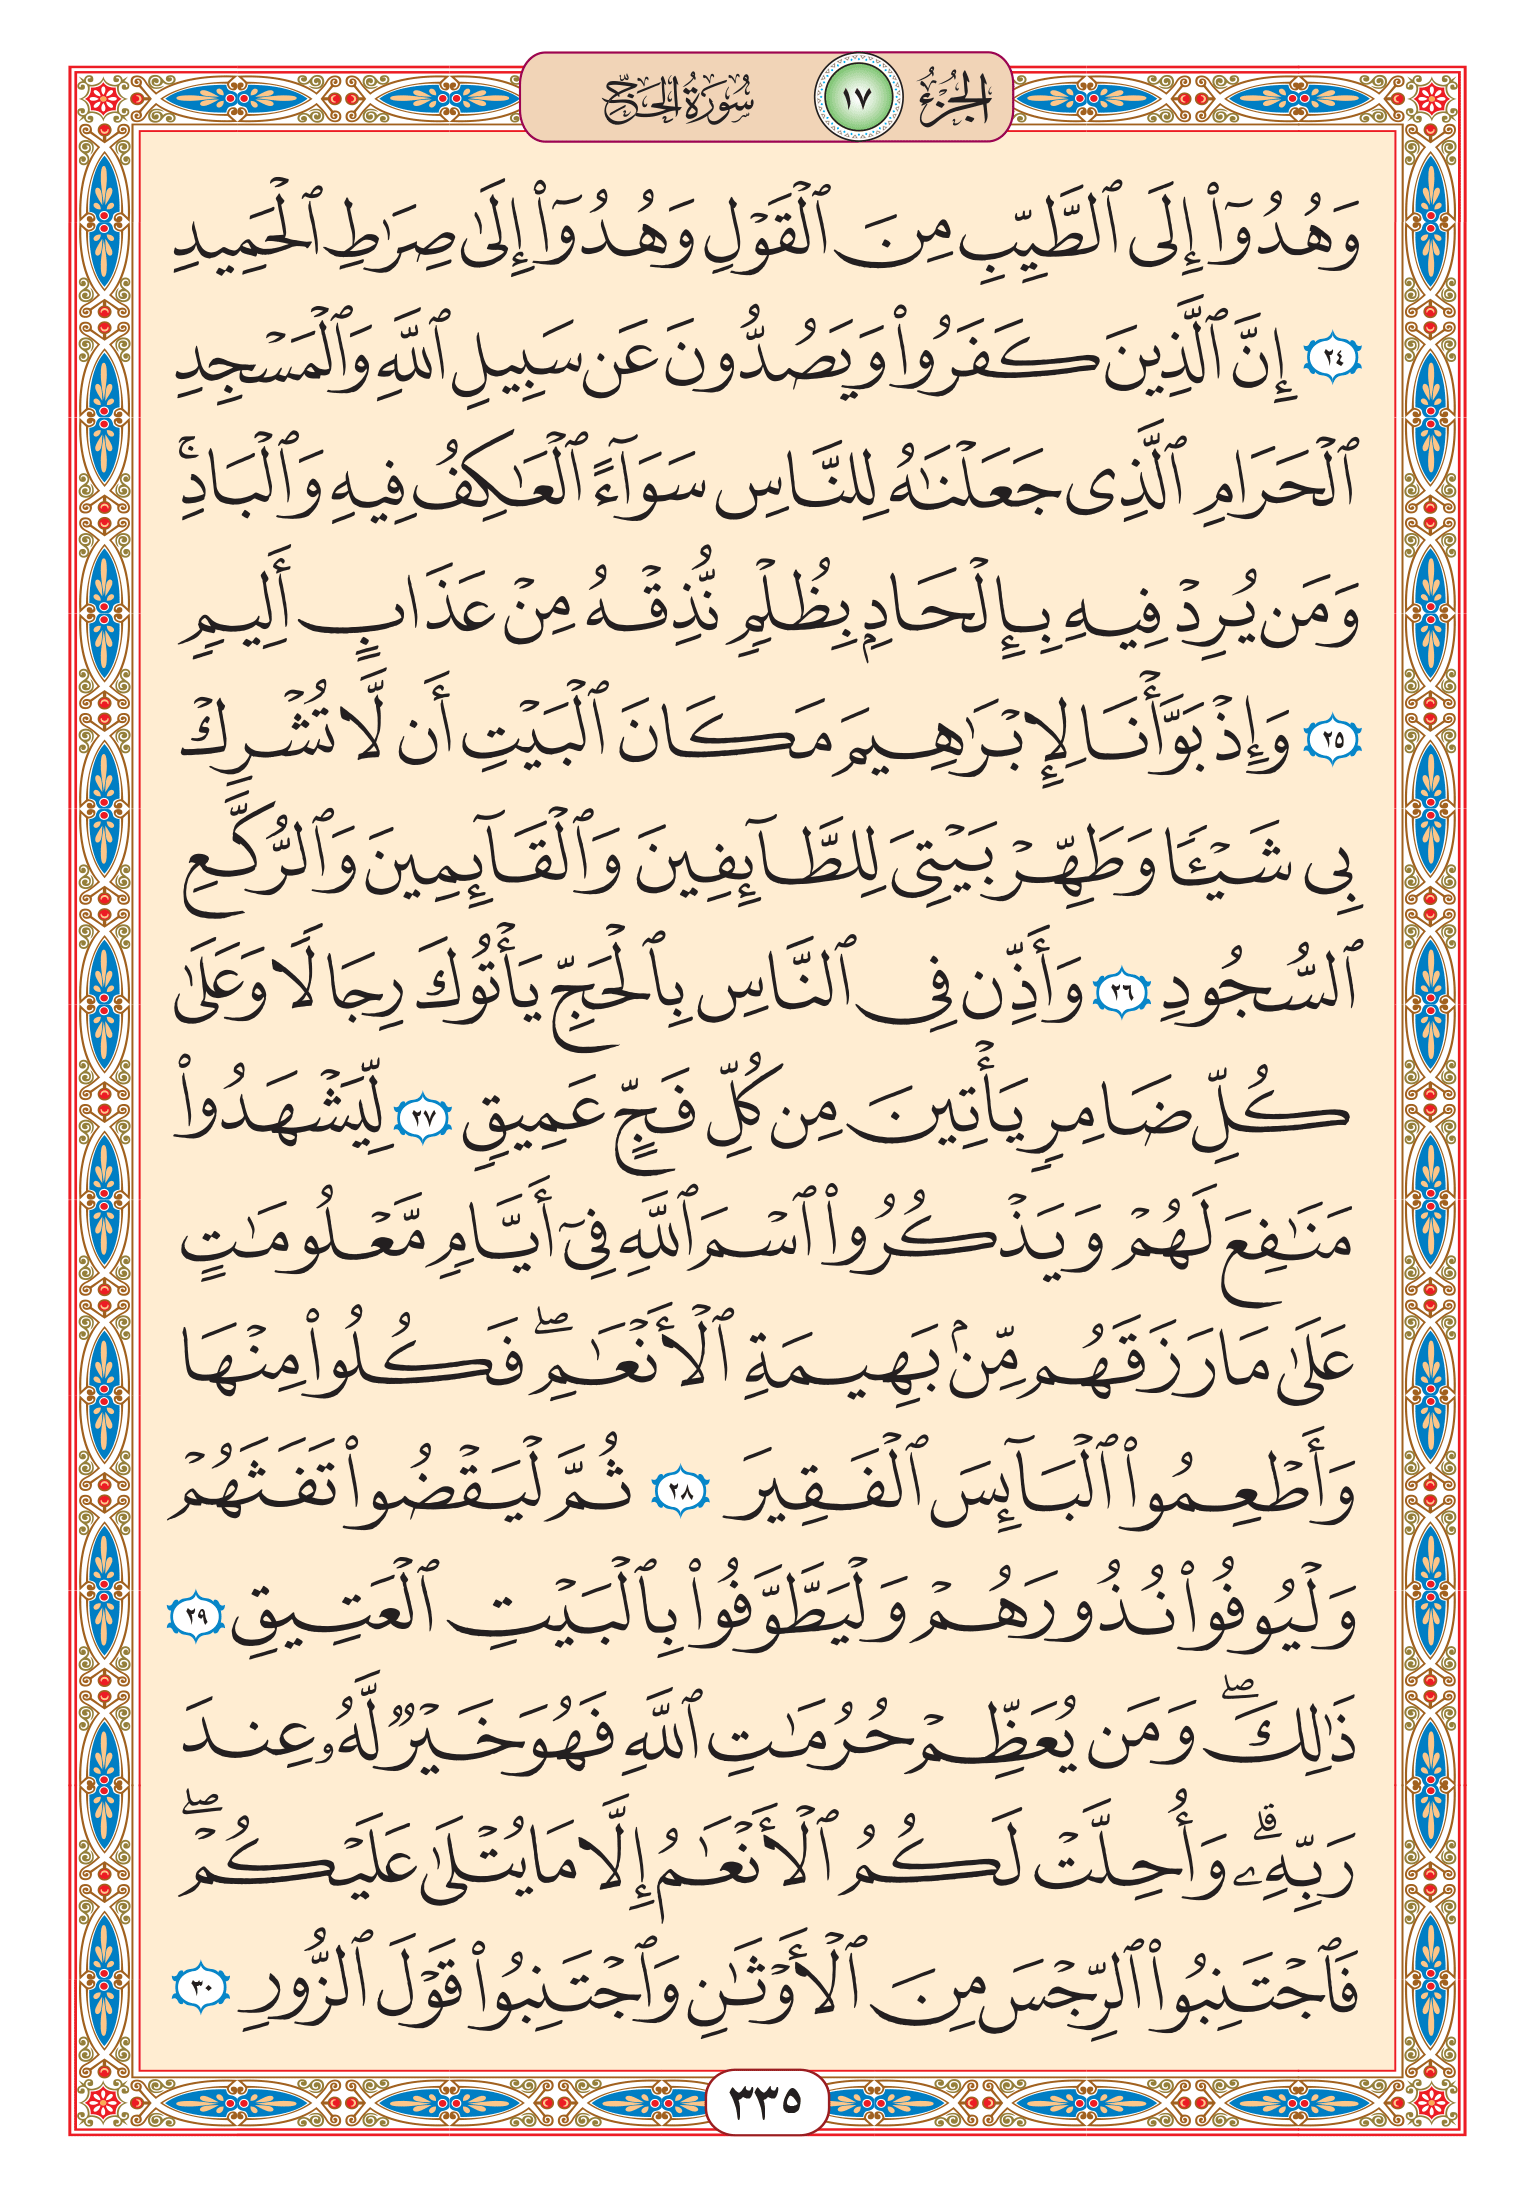 الجزء ١٧ سورة الحج
وَهُدُوٓا۟ إِلَى ٱلطَّيِّبِ مِنَ ٱلْقَوْلِ وَهُدُوٓا۟ إِلَىٰ صِرَٰطِ ٱلْحَمِيدِ
٢٤ إِنَّ ٱلَّذِينَ كَفَرُوا۟ وَيَصُدُّونَ عَن سَبِيلِ ٱللَّهِ وَٱلْمَسْجِدِ
ٱلْحَرَامِ ٱلَّذِى جَعَلْنَٰهُ لِلنَّاسِ سَوَآءً ٱلْعَٰكِفُ فِيهِ وَٱلْبَادِ ۚ
وَمَن يُرِدْ فِيهِ بِإِلْحَادٍۭ بِظُلْمٍ نُّذِقْهُ مِنْ عَذَابٍ أَلِيمٍ
٢٥ وَإِذْ بَوَّأْنَا لِإِبْرَٰهِيمَ مَكَانَ ٱلْبَيْتِ أَن لَّا تُشْرِكْ
بِى شَيْـًٔا وَطَهِّرْ بَيْتِىَ لِلطَّآئِفِينَ وَٱلْقَآئِمِينَ وَٱلرُّكَّعِ
ٱلسُّجُودِ ٢٦ وَأَذِّن فِى ٱلنَّاسِ بِٱلْحَجِّ يَأْتُوكَ رِجَالًا وَعَلَىٰ
كُلِّ ضَامِرٍ يَأْتِينَ مِن كُلِّ فَجٍّ عَمِيقٍ ٢٧ لِّيَشْهَدُوا۟
مَنَٰفِعَ لَهُمْ وَيَذْكُرُوا۟ ٱسْمَ ٱللَّهِ فِىٓ أَيَّامٍ مَّعْلُومَٰتٍ
عَلَىٰ مَا رَزَقَهُم مِّنۢ بَهِيمَةِ ٱلْأَنْعَٰمِ ۖ فَكُلُوا۟ مِنْهَا
وَأَطْعِمُوا۟ ٱلْبَآئِسَ ٱلْفَقِيرَ ٢٨ ثُمَّ لْيَقْضُوا۟ تَفَثَهُمْ
وَلْيُوفُوا۟ نُذُورَهُمْ وَلْيَطَّوَّفُوا۟ بِٱلْبَيْتِ ٱلْعَتِيقِ ٢٩
ذَٰلِكَ ۖ وَمَن يُعَظِّمْ حُرُمَٰتِ ٱللَّهِ فَهُوَ خَيْرٌ لَّهُۥ عِندَ
رَبِّهِۦ ۗ وَأُحِلَّتْ لَكُمُ ٱلْأَنْعَٰمُ إِلَّا مَا يُتْلَىٰ عَلَيْكُمْ ۖ
فَٱجْتَنِبُوا۟ ٱلرِّجْسَ مِنَ ٱلْأَوْثَٰنِ وَٱجْتَنِبُوا۟ قَوْلَ ٱلزُّورِ ٣٠
٣٣٥